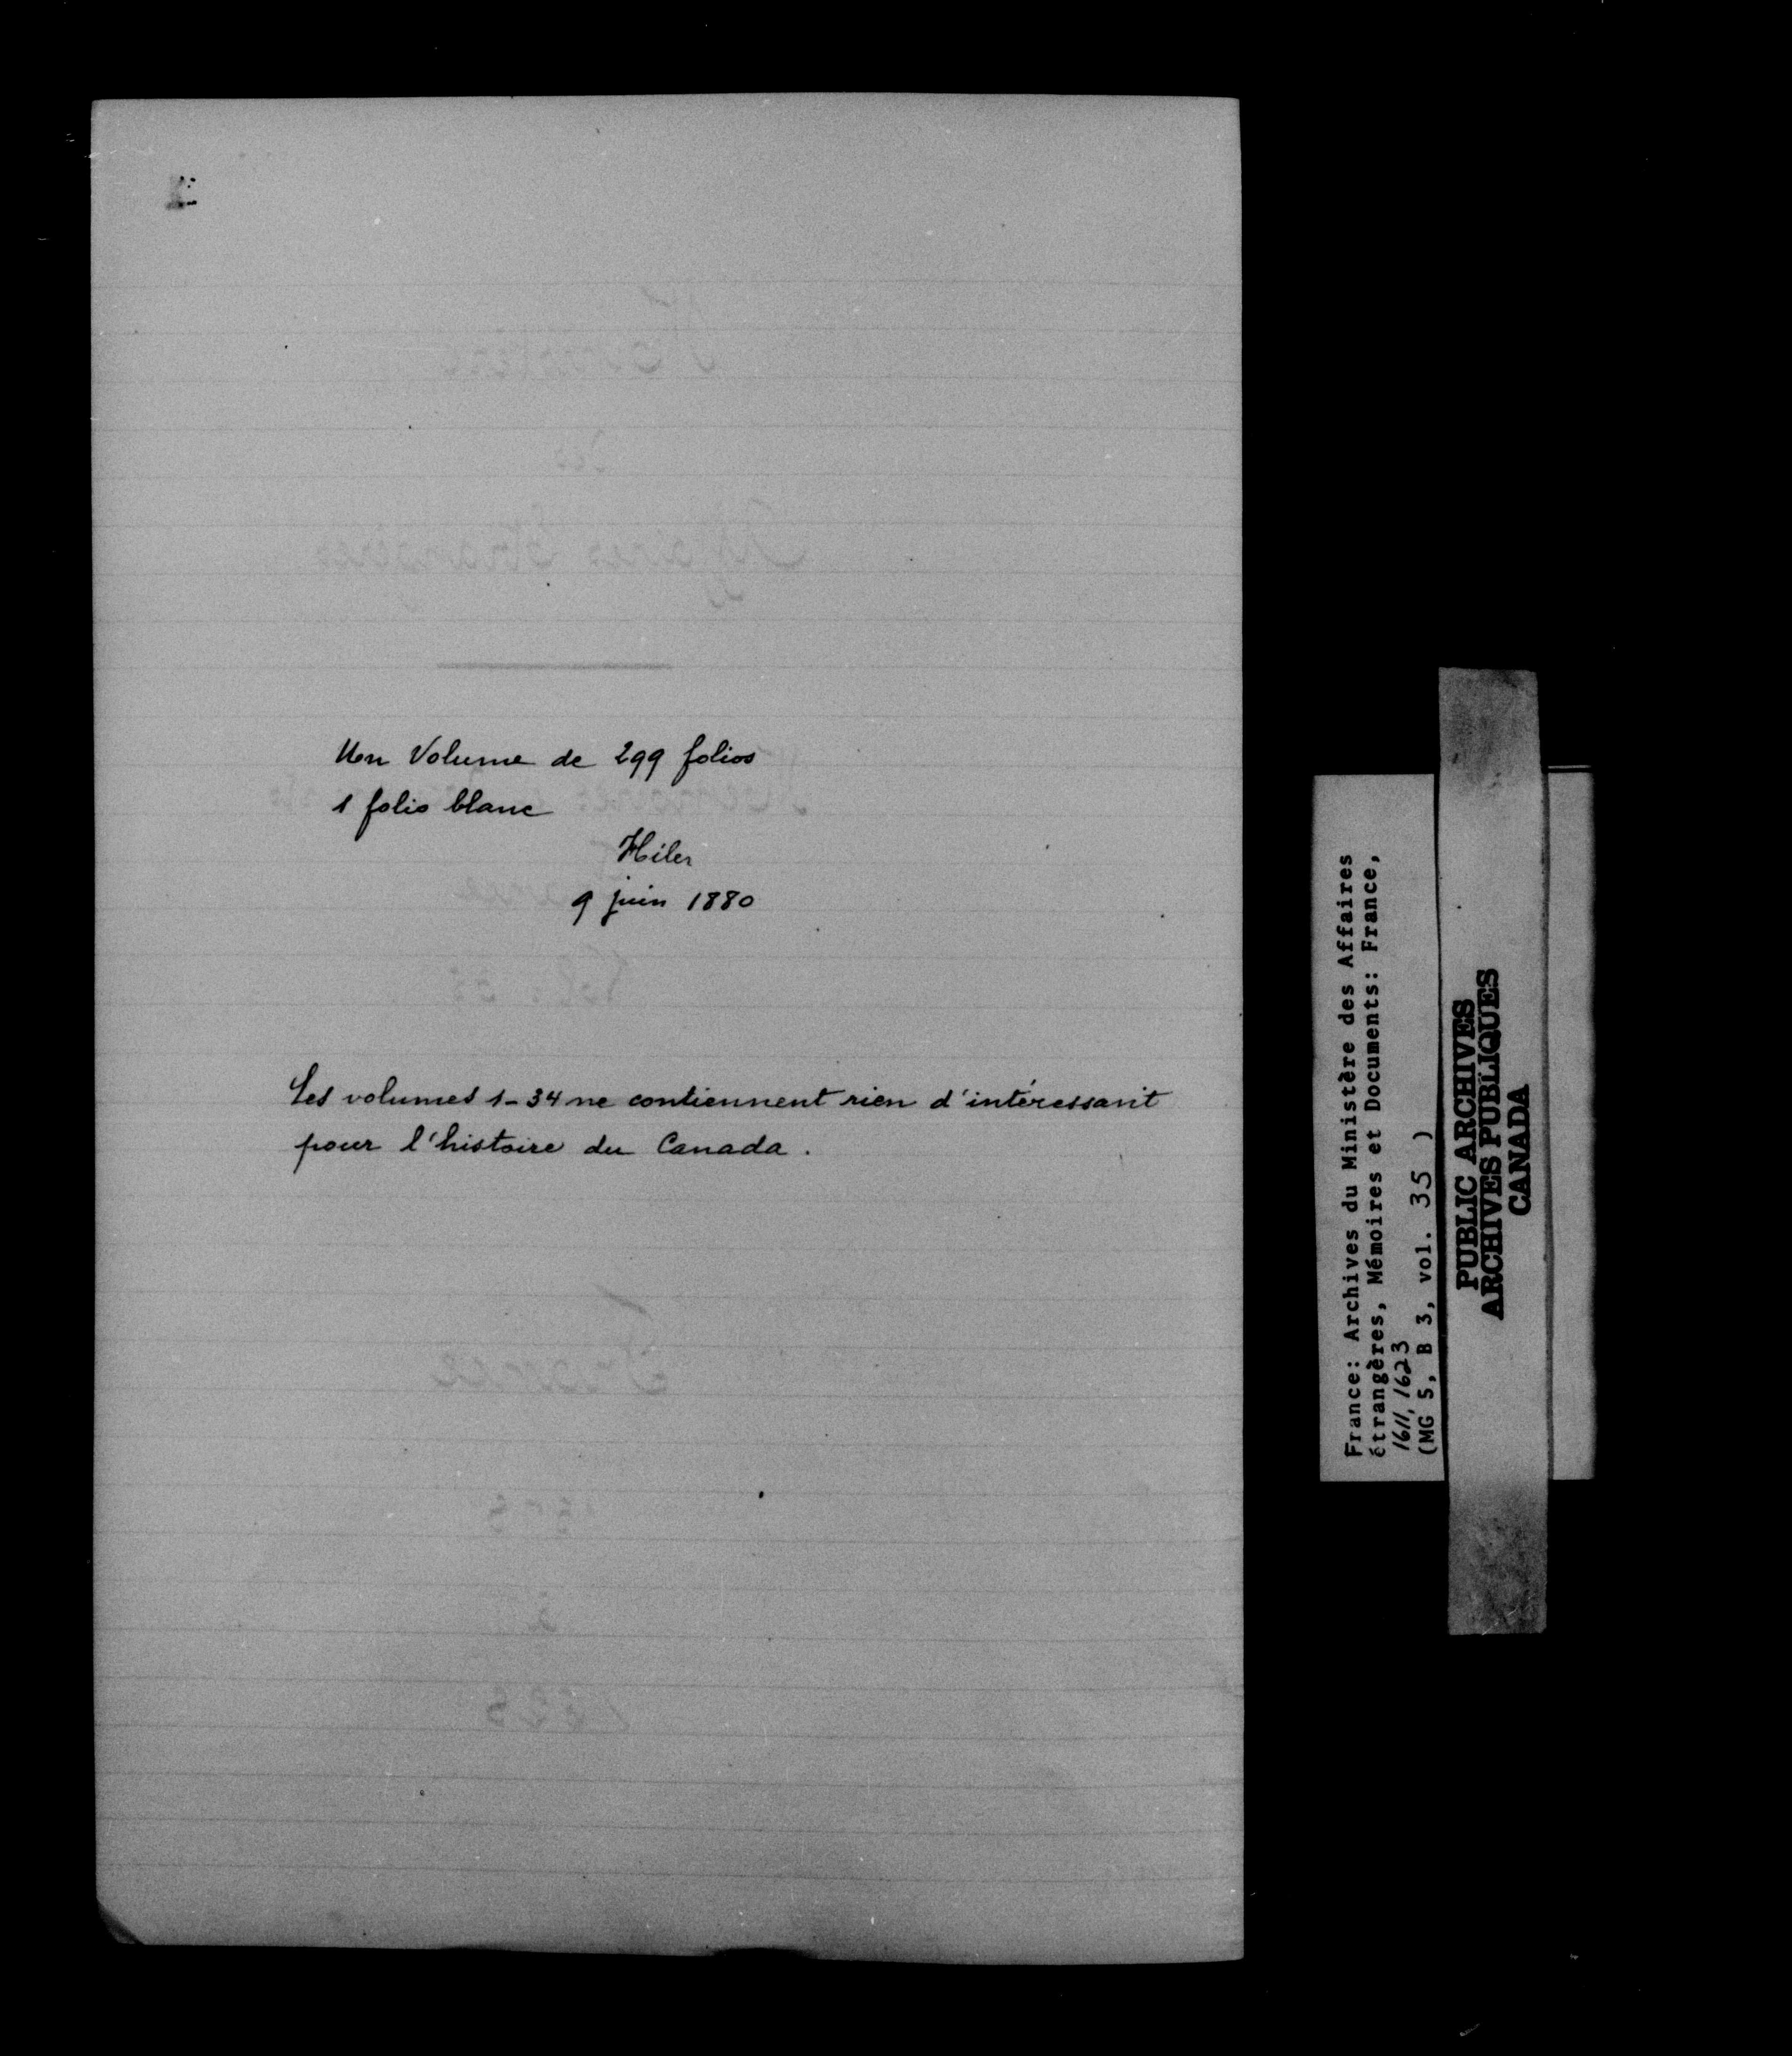 Un Volume de 299 folios
1 folio blanc
Hiler
9 juin 1880
Les volumes 1-34 ne contiennent rien d'intéressant
pour l'histoire du Canada.
France: Archives du Ministère des Affaires
étrangères, Mémoires et Documents: France,
1611, 1623
(MG 5, B 3, vol. 35 )
PUBLIC ARCHIVES
ARCHIVES PUBLIQUES
CANADA